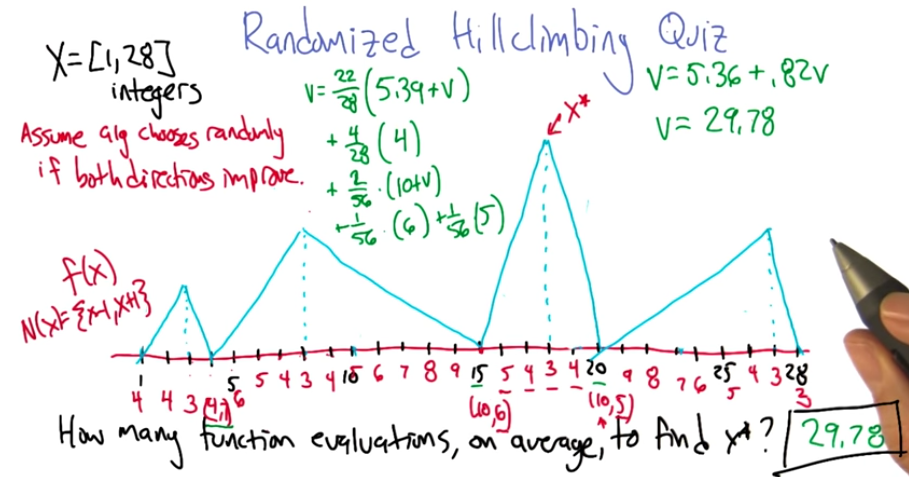 Randomized Hillclimbing Quiz
X = [1,28]
integers
Assume alg chooses randomly
if both directions improve.
v = 22/28 (5.39+v)
+ 4/28 (4)
+ 2/56 · (10+v)
+ 1/56 · (6) + 1/56 (5)
v = 5.36 + .82v
v = 29.78
x*
f(x)
N(x) = {x-1, x+1}
1 5 10 15 20 25 28
4 4 3 (4,) 6 5 4 3 4 5 6 7 8 9 5 4 3 4 9 8 7 6 5 4 3 3
(10,6) (10,5)
How many function evaluations, on average, to find x*? 29.78